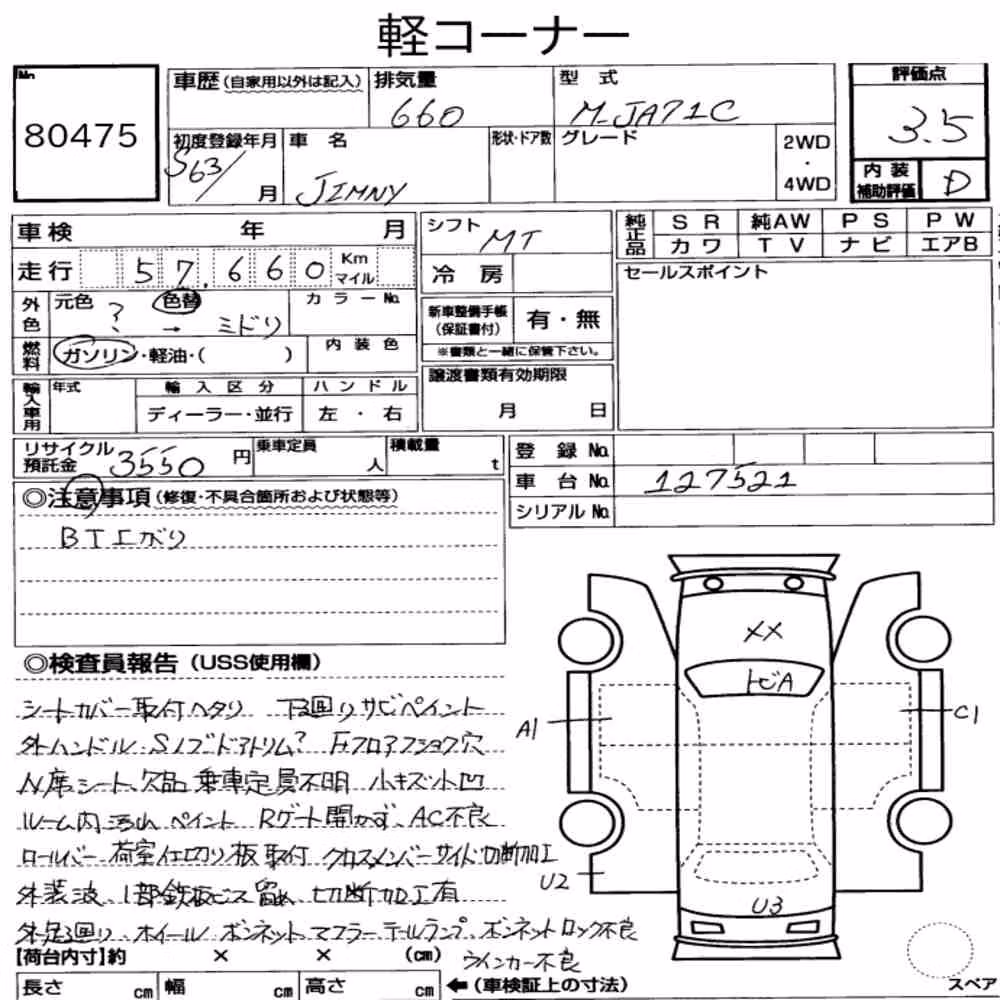 軽コーナー
No.
80475
車歴(自家用以外は記入)
排気量
660
型 式
M-JA71C
評価点
3.5
初度登録年月
S63/
月
車 名
JIMNY
形状・ドア数
グレード
2WD
・
4WD
内 装
補助評価
D
車検 年 月
走行 57,660 Km
マイル
外色
元色 ? → 色替 ミドリ
カラーNo.
燃料
ガソリン・軽油・( )
内 装 色
輸入車用
年式
輸 入 区 分
ディーラー・並行
ハ ン ド ル
左 ・ 右
シフト
MT
冷 房
新車整備手帳
(保証書付)
有・無
※書類と一緒に保管下さい。
譲渡書類有効期限
月 日
純正品
S R 純AW P S P W
カ ワ T V ナ ビ エアB
セールスポイント
リサイクル
預託金
3550 円
乗車定員
人
積載量
t
登 録 No.
車 台 No. 127521
シリアル No.
◎注意事項(修復・不具合箇所および状態等)
BT上がり
◎検査員報告(USS使用欄)
シートカバー取付ヘタリ 下回りサビペイント
外ハンドル Sノブ ドアトリム? Fフロアフショク穴
N席シート欠品 乗車定員不明 小キズ小凹
ルーム内汚れ ペイント Rゲート開かず、AC不良
ロールバー 荷室仕切り板取付 クロスメンバーサイド切断加工
外装波、1部鉄板ビス留め 切断加工有
外足回り ホイール ボンネット マフラー テールランプ ボンネットロック不良
ウインカー不良
××
トビA
A1
C1
U2
U3
【荷台内寸】約 × × (cm)
長さ cm 幅 cm 高さ cm
←(車検証上の寸法)
スペア